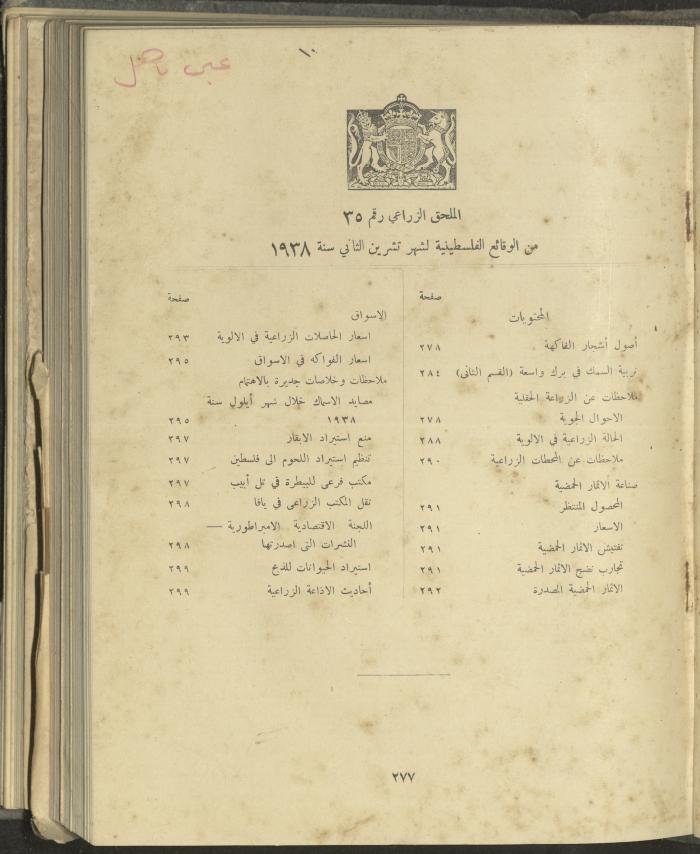 ١٠
الملحق الزراعي رقم ٣٥
من الوقائع الفلسطينية لشهر تشرين الثاني سنة ١٩٣٨
صفحة
المحتويات
أصول أشجار الفاكهة ٢٧٨
تربية السمك في برك واسعة (القسم الثاني) ٢٨٤
ملاحظات عن الزراعة الحقلية
الاحوال الجوية ٢٧٨
الحالة الزراعية في الالوية ٢٨٨
ملاحظات عن المحطات الزراعية ٢٩٠
صناعة الاثمار الحمضية
المحصول المنتظر ٢٩١
الاسعار ٢٩١
تفتيش الاثمار الحمضية ٢٩١
تجارب نضج الاثمار الحمضية ٢٩١
الاثمار الحمضية المصدرة ٢٩٢
صفحة
الاسواق
اسعار الحاصلات الزراعية في الالوية ٢٩٣
اسعار الفواكه في الاسواق ٢٩٥
ملاحظات وخلاصات جديرة بالاهتمام
مصايد الاسماك خلال شهر أيلول سنة
١٩٣٨ ٢٩٥
منع استيراد الابقار ٢٩٧
تنظيم استيراد اللحوم الى فلسطين ٢٩٧
مكتب فرعي للبيطرة في تل أبيب ٢٩٧
نقل المكتب الزراعي في يافا ٢٩٨
اللجنة الاقتصادية الامبراطورية —
النشرات التي اصدرتها ٢٩٨
استيراد الحيوانات للذبح ٢٩٩
أحاديث الاذاعة الزراعية ٢٩٩
٢٧٧